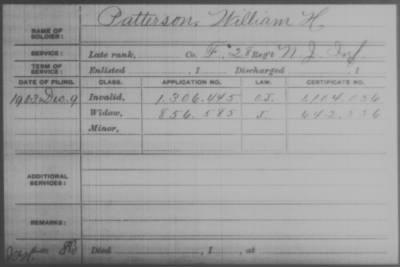 Patterson, William H.
NAME OF SOLDIER:
SERVICE: Late rank, Co. F, 28 Reg't N. J. Inf
TERM OF SERVICE: Enlisted , 1 Discharged , 1
DATE OF FILING. CLASS. APPLICATION NO. LAW. CERTIFICATE NO.
1903 Dec. 9 Invalid, 1.306.445
Widow, 856.585
Minor,
ADDITIONAL SERVICES:
REMARKS:
Died , 1 , at